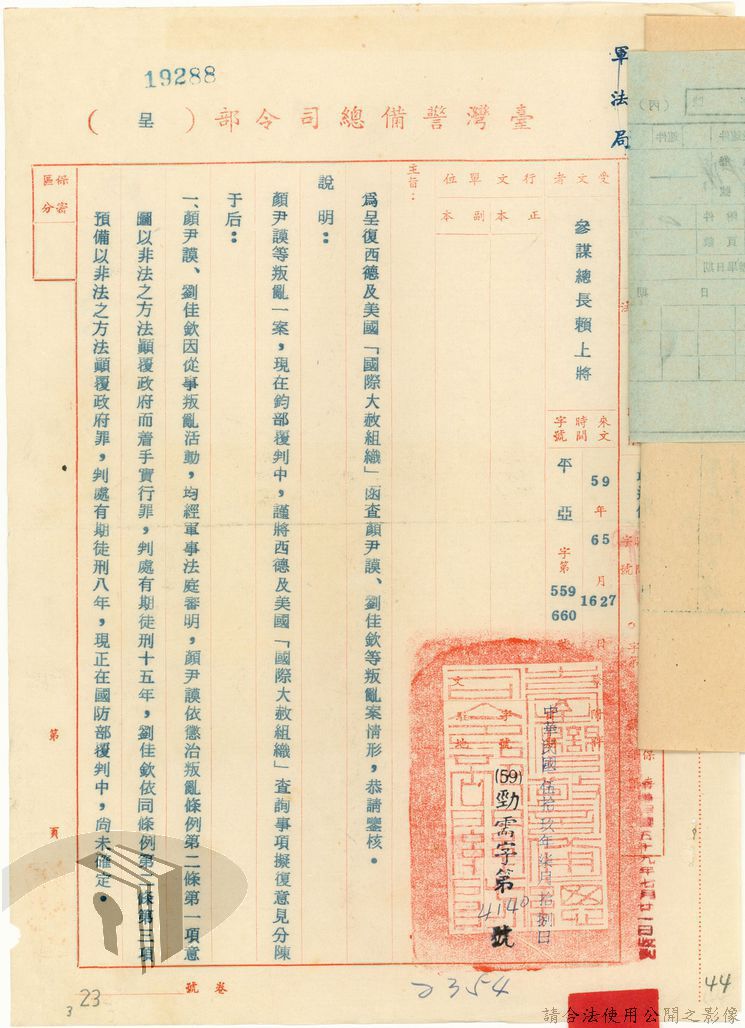 19288
軍法局
臺灣警備總司令部（呈）
保密區分
受文者
參謀總長賴上將
行文單位
正本
副本
來文時間字號
59年
65月
1627日
平亞字第
559
660
號
中華民國伍拾玖年柒月拾捌日
字號
(59)勁需字第4140號
駐地
主旨：
為呈復西德及美國「國際大赦組織」函查顏尹謨、劉佳欽等叛亂案情形，恭請鑒核。
說明：
顏尹謨等叛亂一案，現在鈞部覆判中，謹將西德及美國「國際大赦組織」查詢事項擬復意見分陳
于后：
一、顏尹謨、劉佳欽因從事叛亂活動，均經軍事法庭審明，顏尹謨依懲治叛亂條例第二條第一項意
圖以非法之方法顛覆政府而着手實行罪，判處有期徒刑十五年，劉佳欽依同條例第二條第三項
預備以非法之方法顛覆政府罪，判處有期徒刑八年，現正在國防部覆判中，尚未確定。
第
頁
卷
號
23
3
2354
44
請合法使用公開之影像